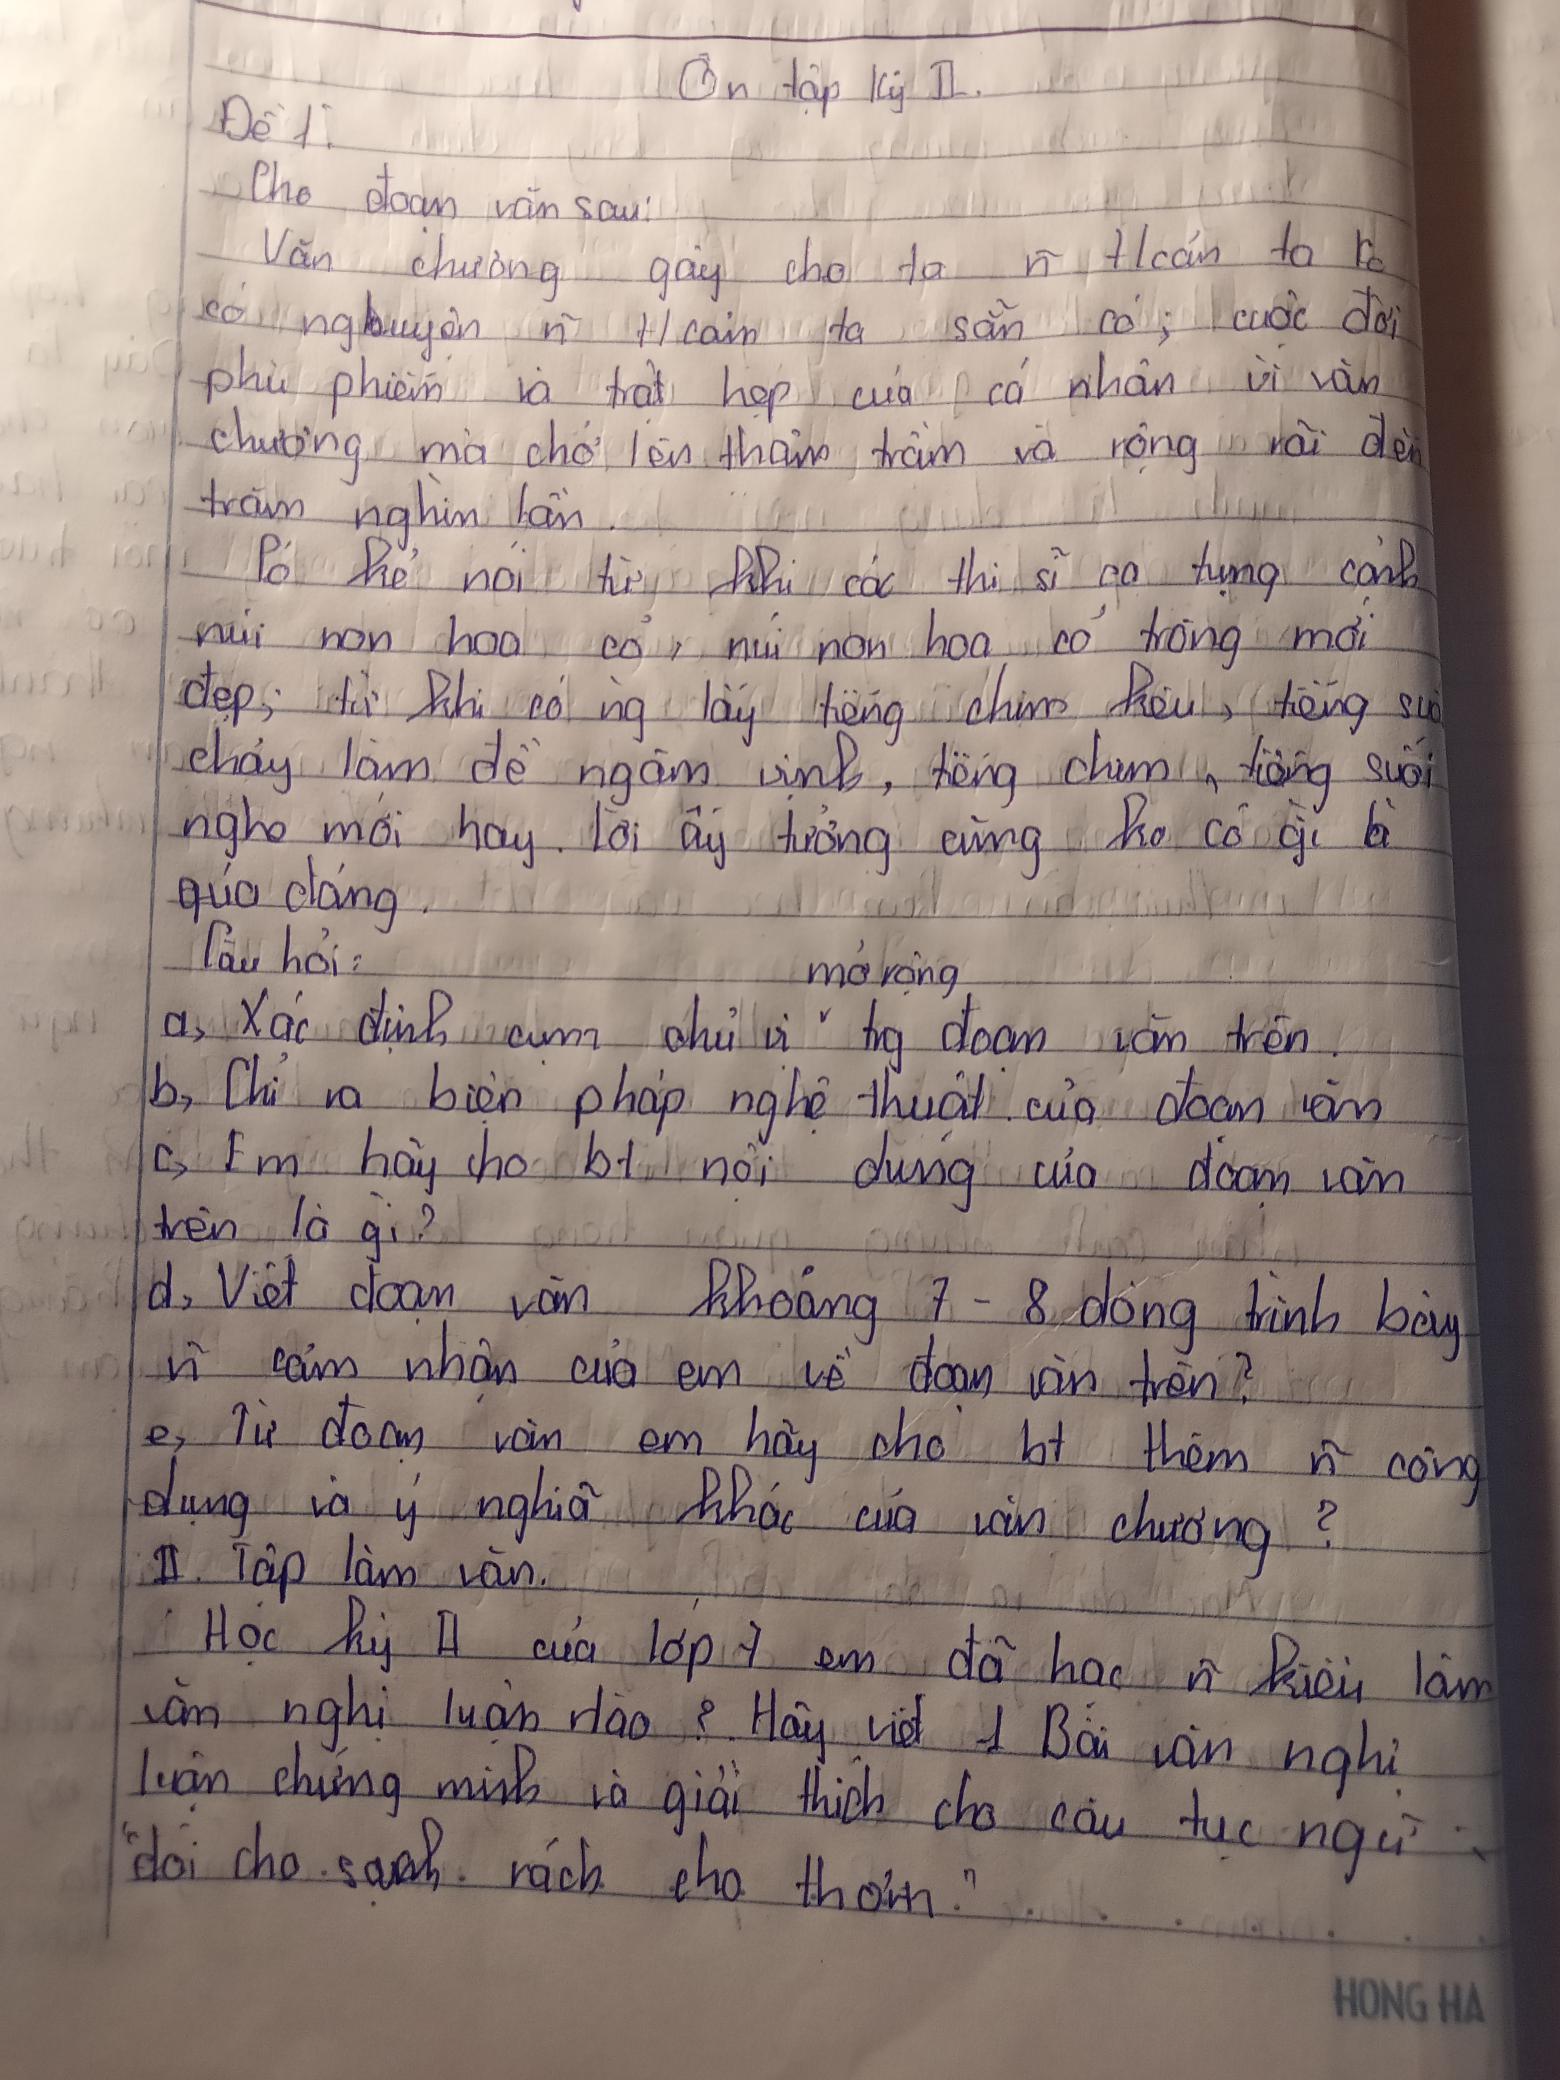 Ôn tập kỳ II.
Đề 1:
Cho đoạn văn sau:
Văn chương gây cho ta n~ t/cảm ta ko
có nghuyện n~ t/cảm ta sẵn có; cuộc đời
phù phiếm và trật hẹp của cá nhân vì văn
chương mà chở lên thâm trầm và rộng rãi đến
trăm nghìn lần.
Có kẻ nói từ khi các thi sĩ ca tụng cảnh
núi non hoa cỏ, núi non hoa cỏ trông mới
đẹp; từ khi có ng lấy tiếng chim kêu, tiếng suối
chảy làm đề ngâm vịnh, tiếng chim, tiếng suối
nghe mới hay. Lời ấy tưởng cũng ko có gì là
quá đáng.
Câu hỏi:
mở rộng
a, Xác định cụm chủ vị ˅ tg đoạn văn trên.
b, Chỉ ra biện pháp nghệ thuật của đoạn văn
c, Em hãy cho bt nội dung của đoạn văn
trên là gì?
d, Viết đoạn văn khoảng 7 - 8 dòng trình bày
n~ cảm nhận của em về đoạn văn trên?
e, Từ đoạn văn em hãy cho bt thêm n~ công
dụng và ý nghiã khác của văn chương?
II. Tập làm văn.
Học kỳ II của lớp 7 em đã học n~ kiểu làm
văn nghị luận nào? Hãy viết 1 Bài văn nghị
luận chứng minh và giải thích cho câu tục ngữ:
"đói cho sạch. rách cho thơm"
HONG HA